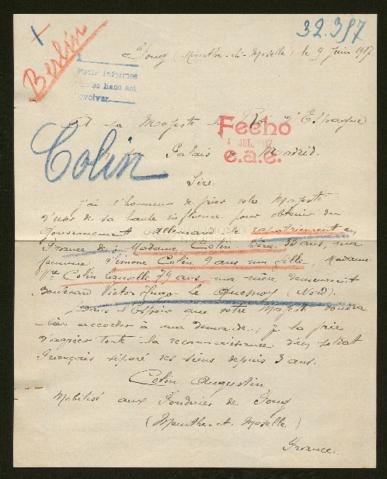 32.387
Berlin
Jouy (Meurthe-et-Moselle) le 9 Juin 1917
A Sa Majesté le Roi d'Espagne
Palais Madrid.
Fecho
JUL. 1917
e.a.e.
Colin
Sire,
j'ai l'honneur de prier votre Majesté
d'user de sa haute influence pour obtenir du
Gouvernement Allemand le rapatriement en
France de Madame Colin 32 ans, ma
femme, Colin 9 ans, ma fille, Madame
Colin Camille 74 ans, ma mère, demeurant
Boulevard Victor le Quesnoy (Nord).
Dans l'espoir que votre Majesté voudra
bien accéder à ma demande, je la prie
d'agréer toute la reconnaissance d'un soldat
français séparé des siens depuis 3 ans.
Colin Augustin
Mobilisé aux Fonderies de Jouy
(Meurthe-et-Moselle)
France.